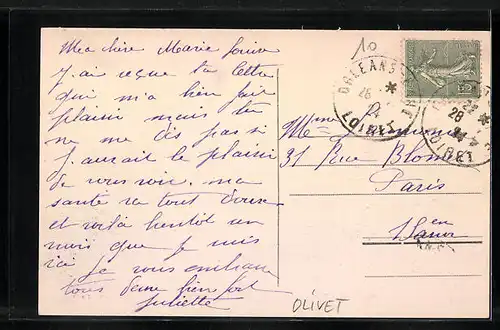 Ma chère Marie Louise
J'ai reçue ta lettre
qui m'a bien fait
plaisir mais tu
ne me dis pas si
j'aurait le plaisir
de vous voir. ma
santé va tout doux
et voilà bientôt un
mois que je suis
ici je vous embrasse
tous deux bien fort
Juliette
10
ORLEANS
26
LOIRET
28
LOIRET
Mme
31 Rue Blomet
Paris
en
OLIVET